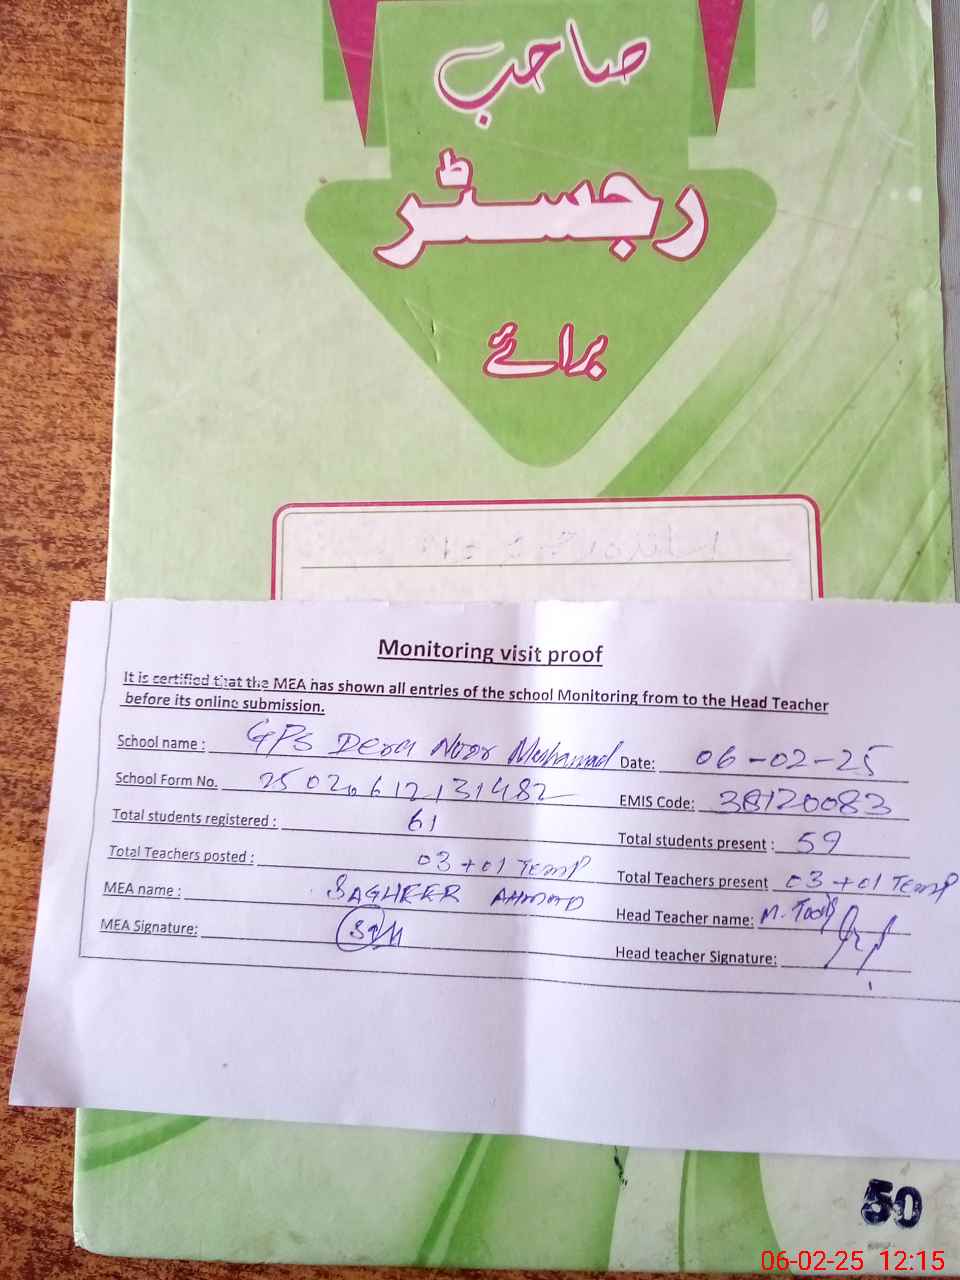 صاحب
رجسٹر
برائے
Monitoring visit proof
It is certified that the MEA has shown all entries of the school Monitoring from to the Head Teacher
before its online submission.
School name : GPS Dera Noor Muhamad Date: 06-02-25
School Form No. 25020612131482 EMIS Code: 38120083
Total students registered : 61 Total students present : 59
Total Teachers posted : 03 + 01 Temp Total Teachers present 03 + 01 Temp
MEA name : SAGHEER AHMAD Head Teacher name: M.
MEA Signature: Head teacher Signature:
50
06-02-25 12:15